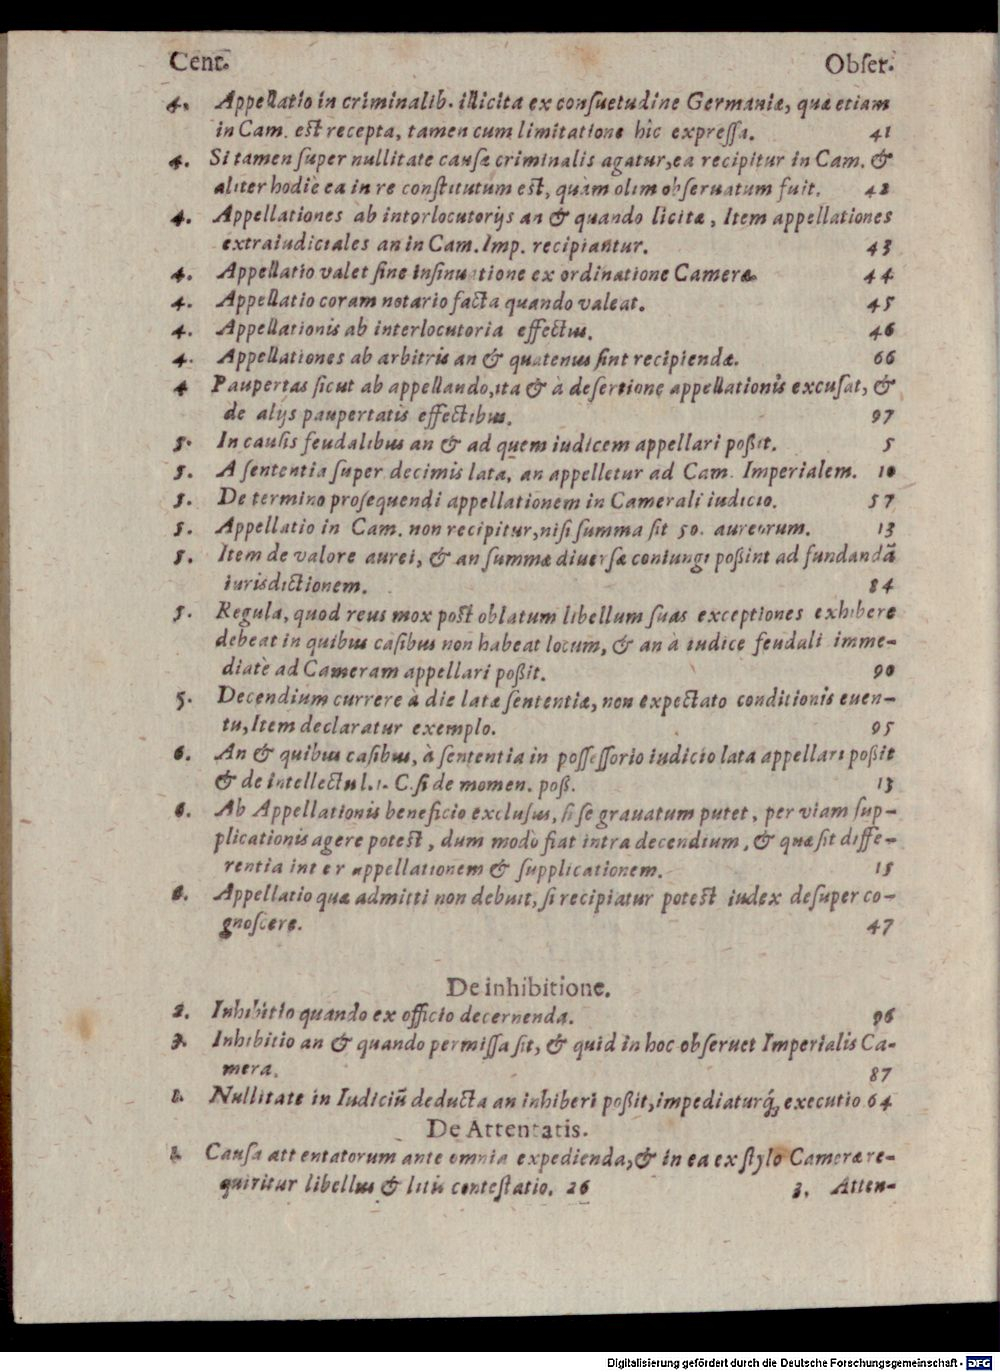 Cent. Obſer.
4. Appellatio in criminalib. illicita ex conſuetudine Germaniæ, quæ etiam
in Cam. eſt recepta, tamen cum limitatione hìc expreſſa. 41
4. Si tamen ſuper nullitate cauſæ criminalis agatur, ea recipitur in Cam. &
aliter hodiè ea in re conſtitutum eſt, quàm olim obſeruatum fuit. 42
4. Appellationes ab interlocutorijs an & quando licitæ, Item appellationes
extraiudiciales an in Cam. Imp. recipiantur. 43
4. Appellatio valet ſine inſinuatione ex ordinatione Cameræ. 44
4. Appellatio coram notario facta quando valeat. 45
4. Appellationis ab interlocutoria effectus. 46
4. Appellationes ab arbitris an & quatenus ſint recipiendæ. 66
4 Paupertas ſicut ab appellando, ita & à deſertione appellationis excuſat, &
de alijs paupertatis effectibus. 97
5. In cauſis feudalibus an & ad quem iudicem appellari poßit. 5
5. A ſententia ſuper decimis lata, an appelletur ad Cam. Imperialem. 10
5. De termino proſequendi appellationem in Camerali iudicio. 57
5. Appellatio in Cam. non recipitur, niſi ſumma ſit 50. aureorum. 13
5. Item de valore aurei, & an ſummæ diuerſæ coniungi poßint ad fundandā
iurisdictionem. 84
5. Regula, quod reus mox poſt oblatum libellum ſuas exceptiones exhibere
debeat in quibus caſibus non habeat locum, & an à iudice feudali imme-
diatè ad Cameram appellari poßit. 90
5. Decendium currere à die latæ ſententiæ, non expectato conditionis euen-
tu, Item declaratur exemplo. 95
6. An & quibus caſibus, à ſententia in poſſeſſorio iudicio lata appellari poßit
& de intellectu l. 1. C. ſi de momen. poß. 13
6. Ab Appellationis beneficio excluſus, ſi ſe grauatum putet, per viam ſup-
plicationis agere poteſt, dum modò fiat intra decendium, & quæ ſit diffe-
rentia inter appellationem & ſupplicationem. 15
6. Appellatio quæ admitti non debuit, ſi recipiatur poteſt iudex deſuper co-
gnoſcere. 47
De inhibitione.
2. Inhibitio quando ex officio decernenda. 96
3. Inhibitio an & quando permiſſa ſit, & quid in hoc obſeruet Imperialis Ca-
mera. 87
Nullitate in Iudiciū deducta an inhiberi poßit, impediaturq́; executio 64
De Attentatis.
Cauſa attentatorum ante omnia expedienda, & in ea ex ſtylo Cameræ re-
quiritur libellus & litis conteſtatio. 26 3. Atten-
Digitalisierung gefördert durch die Deutsche Forschungsgemeinschaft - DFG